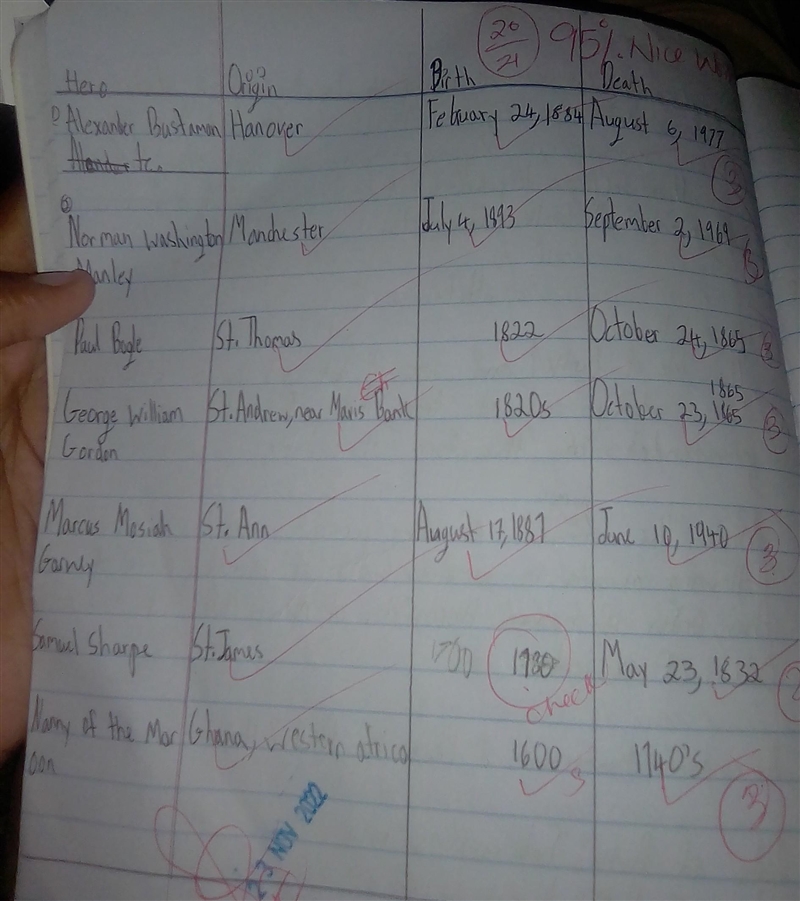 20/21 95%. Nice
Hero Origin Birth Death
① Alexander Bustaman Hanover February 24, 1884 August 6, 1977
te. 3
② Norman Washington Manchester July 4, 1893 September 2, 1969
Manley 3
Paul Bogle St. Thomas 1822 October 24, 1865 3
1865
George William St. Andrew, near Mavis Bank 1820s October 23, 1865 3
Gordon
Marcus Mosiah St. Ann August 17, 1887 June 10, 1940
Garvey 3
Samuel Sharpe St. James 1980 May 23, 1832 2
check
Nanny of the Mar Ghana, Western africa 1600s 1740's
oon 3
23 NOV 2022